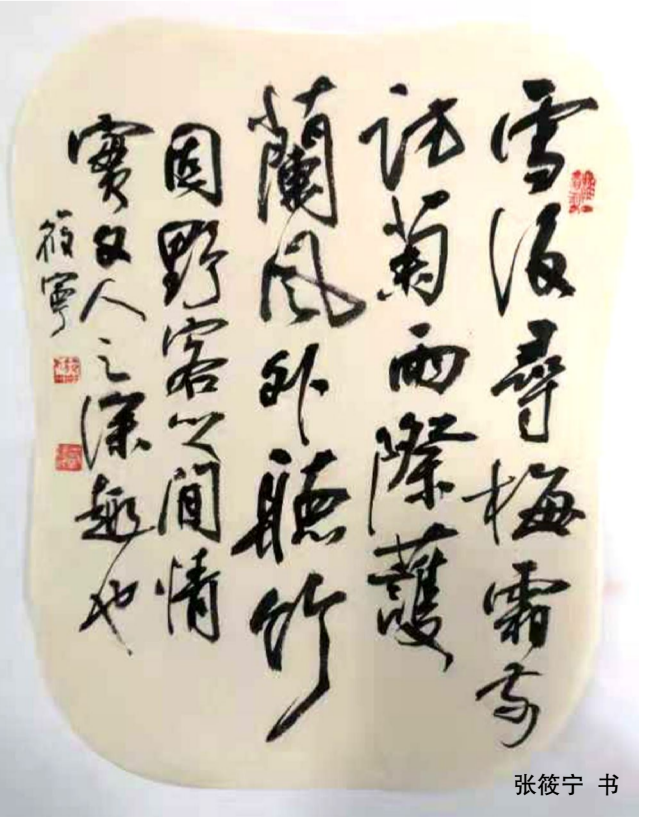 雪後尋梅霜前
訪菊雨際護
蘭風外聽竹
固野客之閒情
實文人之深趣也
筱寧
张筱宁 书